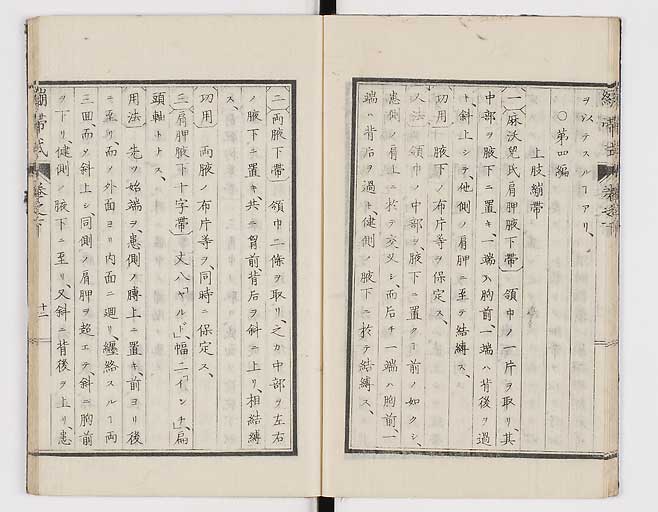 ヲ以テスルコアリ、
○第四編
上肢繃帶
一 麻沃兒氏肩胛腋下帶 領巾ノ一片ヲ取リ、其
中部ヲ腋下ニ置キ、一端ハ胸前、一端ハ背後ヲ過
キ、斜上シテ、他側ノ肩胛ニ至テ結縛ス、
功用 腋下ノ布片等ヲ保定ス、
又法 領巾ノ中部ヲ、腋下ニ置クコ前ノ如クシ、
患側ノ肩上ニ於テ交叉シ、而后チ一端ハ胸前、一
端ハ背后ヲ過キ、健側ノ腋下ニ於テ結縛ス、
二 両腋下帶 領巾二條ヲ取リ、之カ中部ヲ左右
ノ腋下ニ置キ、共ニ胷前、背后ヲ斜ニ上リ、相結縛
ス、
功用 両腋ノ布片等ヲ、同時ニ保定ス、
三 肩胛腋下十字帶 丈八「ヤルド」、幅二「インチ」、扁
頭軸トス、
用法 先ツ始端ヲ、患側ノ膊上ニ置キ、前ヨリ後
ニ至リ、而ノ外面ヨリ内面ニ廻リ、纏絡スルコ両
三回、而ノ斜上シ、同側ノ肩胛ヲ超エテ、斜ニ胸前
ヲ下リ、健側ノ腋下ニ至リ、又斜ニ背後ヲ上リ、患
繃帶式 卷之下 十二